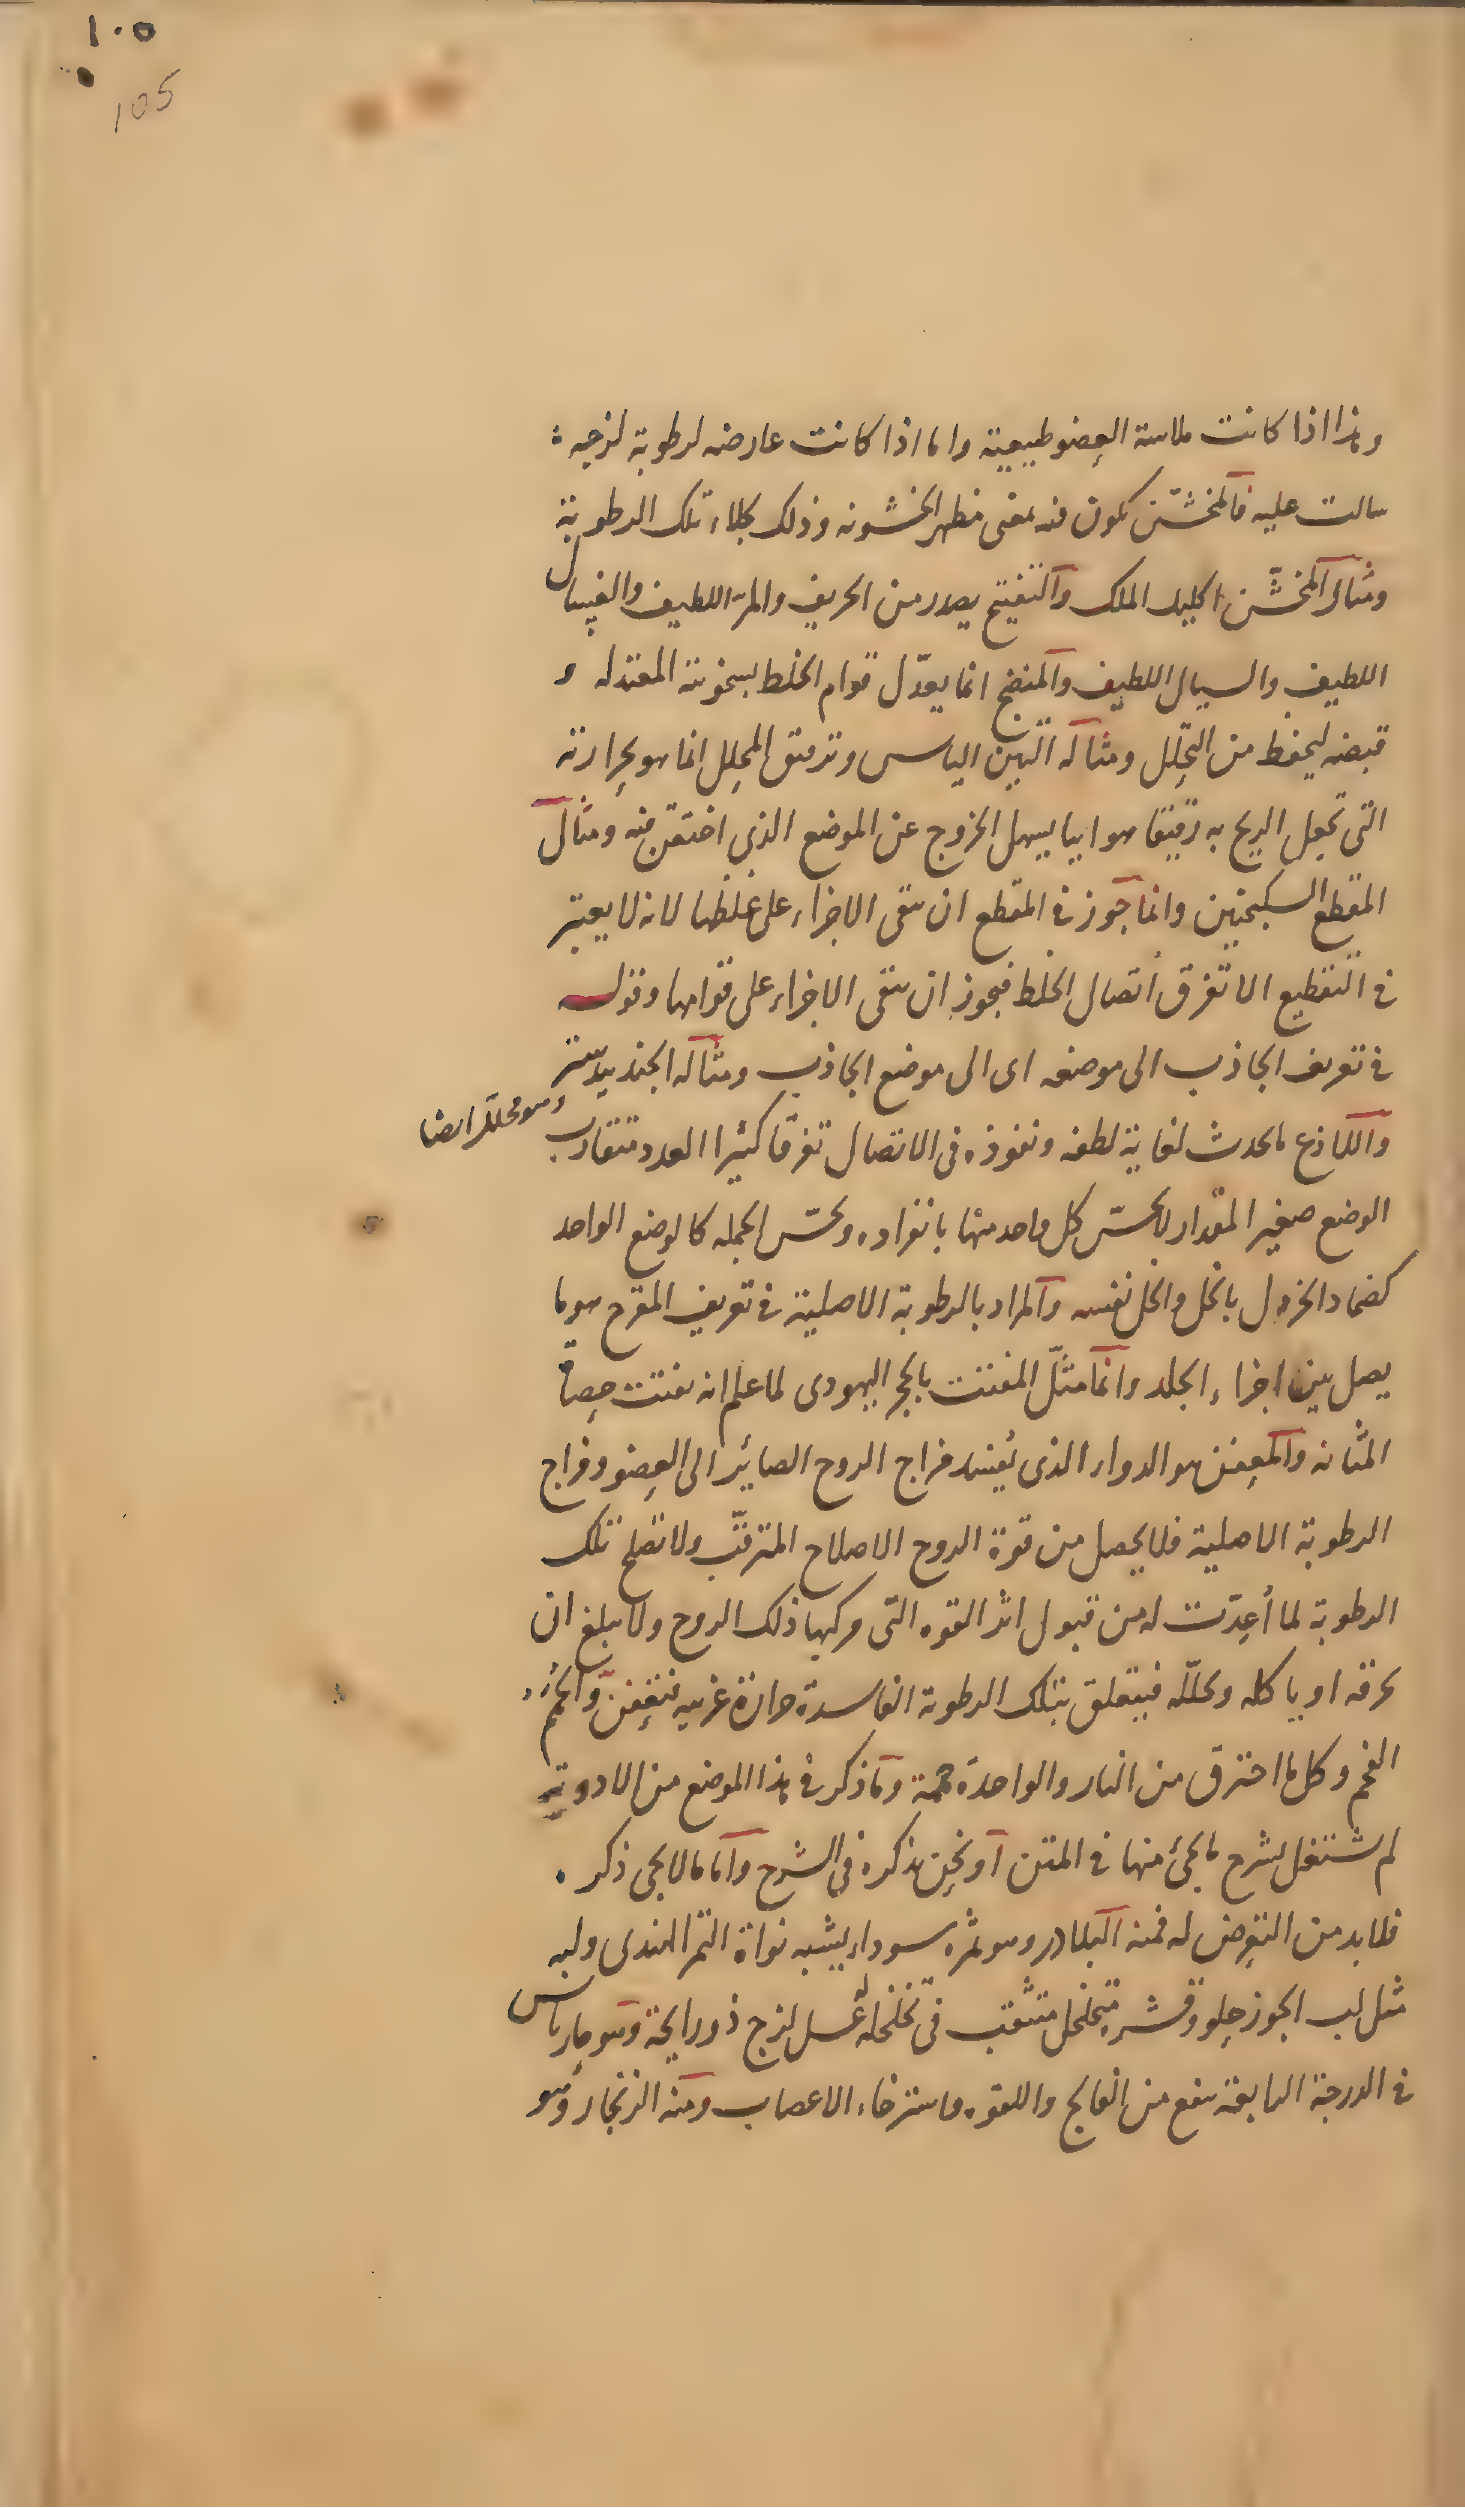 ١٠٥
105
وهذا اذا كانت ملاسة العضو طبيعية واما اذا كانت عارضه لرطوبة لزجه
سالت عليه فالمخشن يكون فيه بمعنى مظهر الخشونه وذلك بجلاء تلك الرطوبة
ومثال المخشّن اكليل الملك والتفتيح يصدر من الحريف والمرّ اللطيف والغسال
اللطيف والسيال اللطيف والمنضج انما يعدّل قوام الخلط بسخونته المعتدله و
قبضه ليحفظ من التحلل ومثاله التين اليابس وترقيق المحلل انما هو بحرارته
التى تجعل الريح به رقيقا هوابيا يسهل الخروج عن الموضع الذى احتقن فيه ومثال
المقطع السكنجبين وانما جوز فى المقطع ان تبقى الاجزاء على غلظها لانه لا يعتبر
فى التقطيع الا تفرق اتصال الخلط فيجوز ان تبقى الاجزاء على قوامها وقوله
فى تعريف الجاذب الى موضعه اى الى موضع الجاذب ومثاله الجندبيدستر
وهو محلل ايضا
واللاذع ما يحدث لغاية لطفه ونفوذه فى الاتصال تفرقا كثير العدد متقارب
الوضع صغير المقدار لا يحسّ كل واحد منها بانفراده ويحسّ الجمله كالوضع الواحد
كضماد الخردل بالخل والخل نفسه والمراد بالرطوبة الاصلية فى تعريف المقرح هو ما
يصل بين اجزاء الجلد وانما مثّل المفتت بالحجر اليهودى لما علم انه يفتت حصاة
المثانه والمعفن هو الدواء الذى يُفسد مزاج الروح الصائر الى العضو ومزاج
الرطوبة الاصلية فلا يحصل من قوة الروح الاصلاح المترقّب ولا تصلح تلك
الرطوبة لما أُعدّت له من قبول اثر القوه التى مركبها ذلك الروح ولا يبلغ ان
يحرقه او ياكله ويحلّله فيتعلق بتلك الرطوبة الفاسدة حرارة غريبه فيعفن والحُمَم
الفحم وكل ما احترق من النار والواحدة حممة وما ذكر فى هذا الموضع من الادوية
لم نشتغل بشرح ما يجئ منها فى المتن او نحن نذكره فى الشرح واما ما لا يجى ذكره
فلا بد من التعرض له فمنه البلادر وهو ثمره سوداء يشبه نواة التمر الهندى ولبه
مثل لب الجوز حلو وقشره متخلخل متثقب فى تخلخله عسل لزج ذو رايحة وهو حار يابس
فى الدرجة الرابعة ينفع من الفالج واللقوه واسترخاء الاعصاب ومنه الزنجار وهو